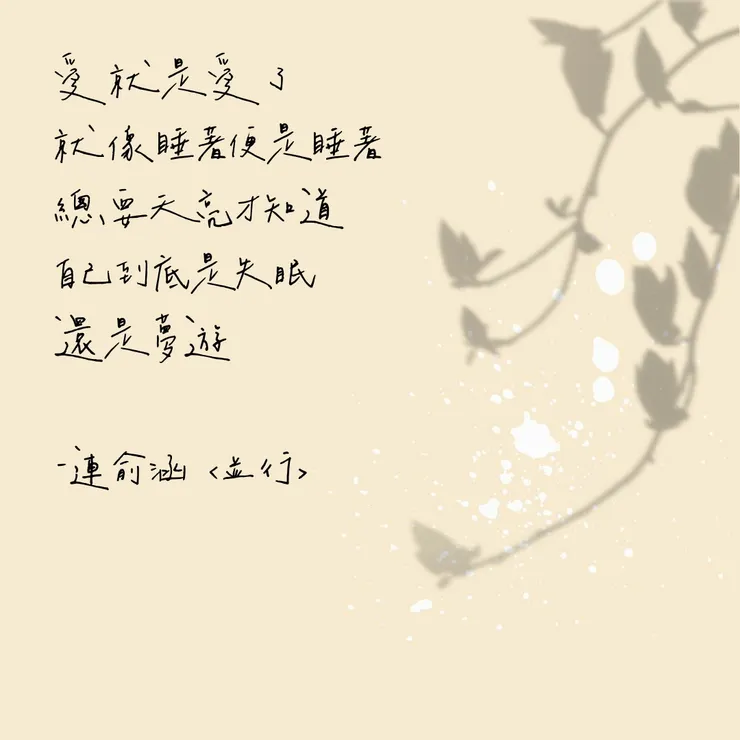 愛就是愛了
就像睡著便是睡著
總要天亮才知道
自己到底是失眠
還是夢遊
-連俞涵<並行>